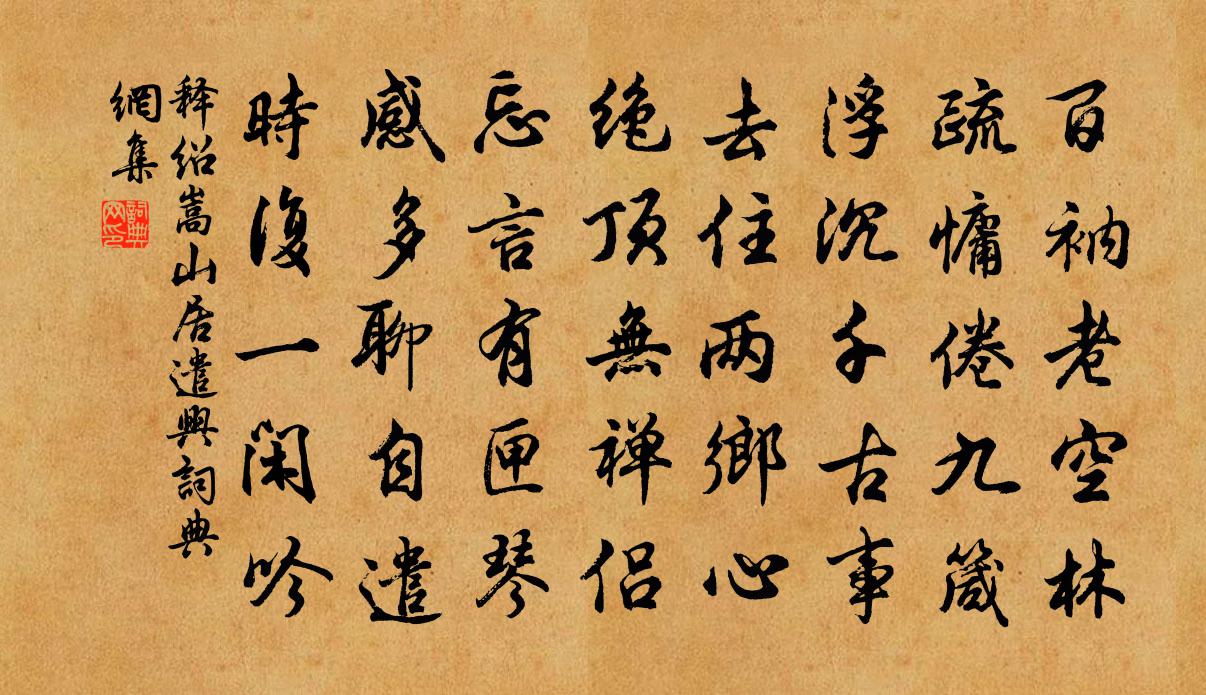 百衲老空林
疏慵倦九箴
浮沉千古事
去住两鄉心
绝顶無禅侣
忘言有匣琴
感多聊自遣
時復一闲吟
释绍嵩山居遣興詞典
網集
詞典
网印